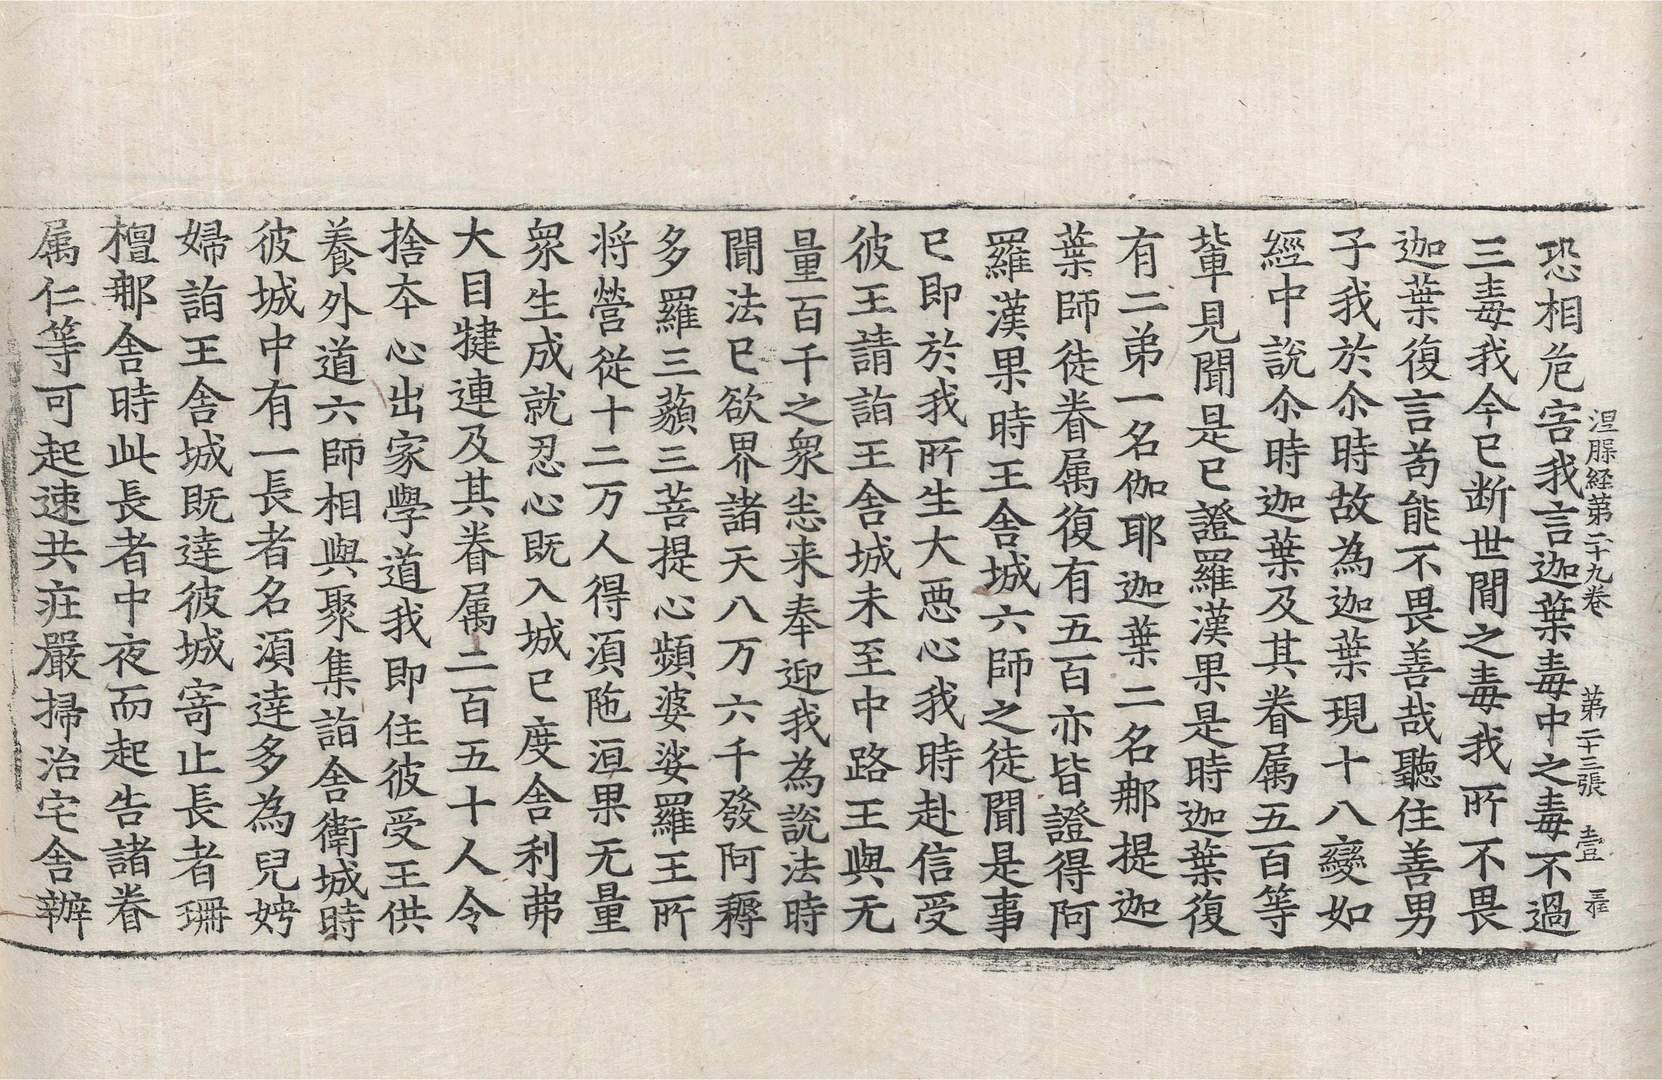 涅槃経苐二十九卷 苐二十三張 壹 珪
恐相危害我言迦葉毒中之毒不過
三毒我今已断世間之毒我所不畏
迦葉復言苟能不畏善哉聽住善男
子我於尒時故為迦葉現十八變如
經中說尒時迦葉及其眷属五百等
輩見聞是已證羅漢果是時迦葉復
有二弟一名伽耶迦葉二名那提迦
葉師徒眷属復有五百亦皆證得阿
羅漢果時王舍城六師之徒聞是事
已即於我所生大惡心我時赴信受
彼王請詣王舍城未至中路王與无
量百千之衆悉来奉迎我為說法時
聞法已欲界諸天八万六千發阿耨
多羅三藐三菩提心頻婆娑羅王所
将營從十二万人得湏陁洹果无量
衆生成就忍心既入城已度舍利弗
大目犍連及其眷属二百五十人令
捨夲心出家學道我即住彼受王供
養外道六師相與聚集詣舍衛城時
彼城中有一長者名湏達多為兒娉
婦詣王舍城既達彼城寄止長者珊
檀那舍時此長者中夜而起告諸眷
属仁等可起速共疰嚴掃治宅舍辦